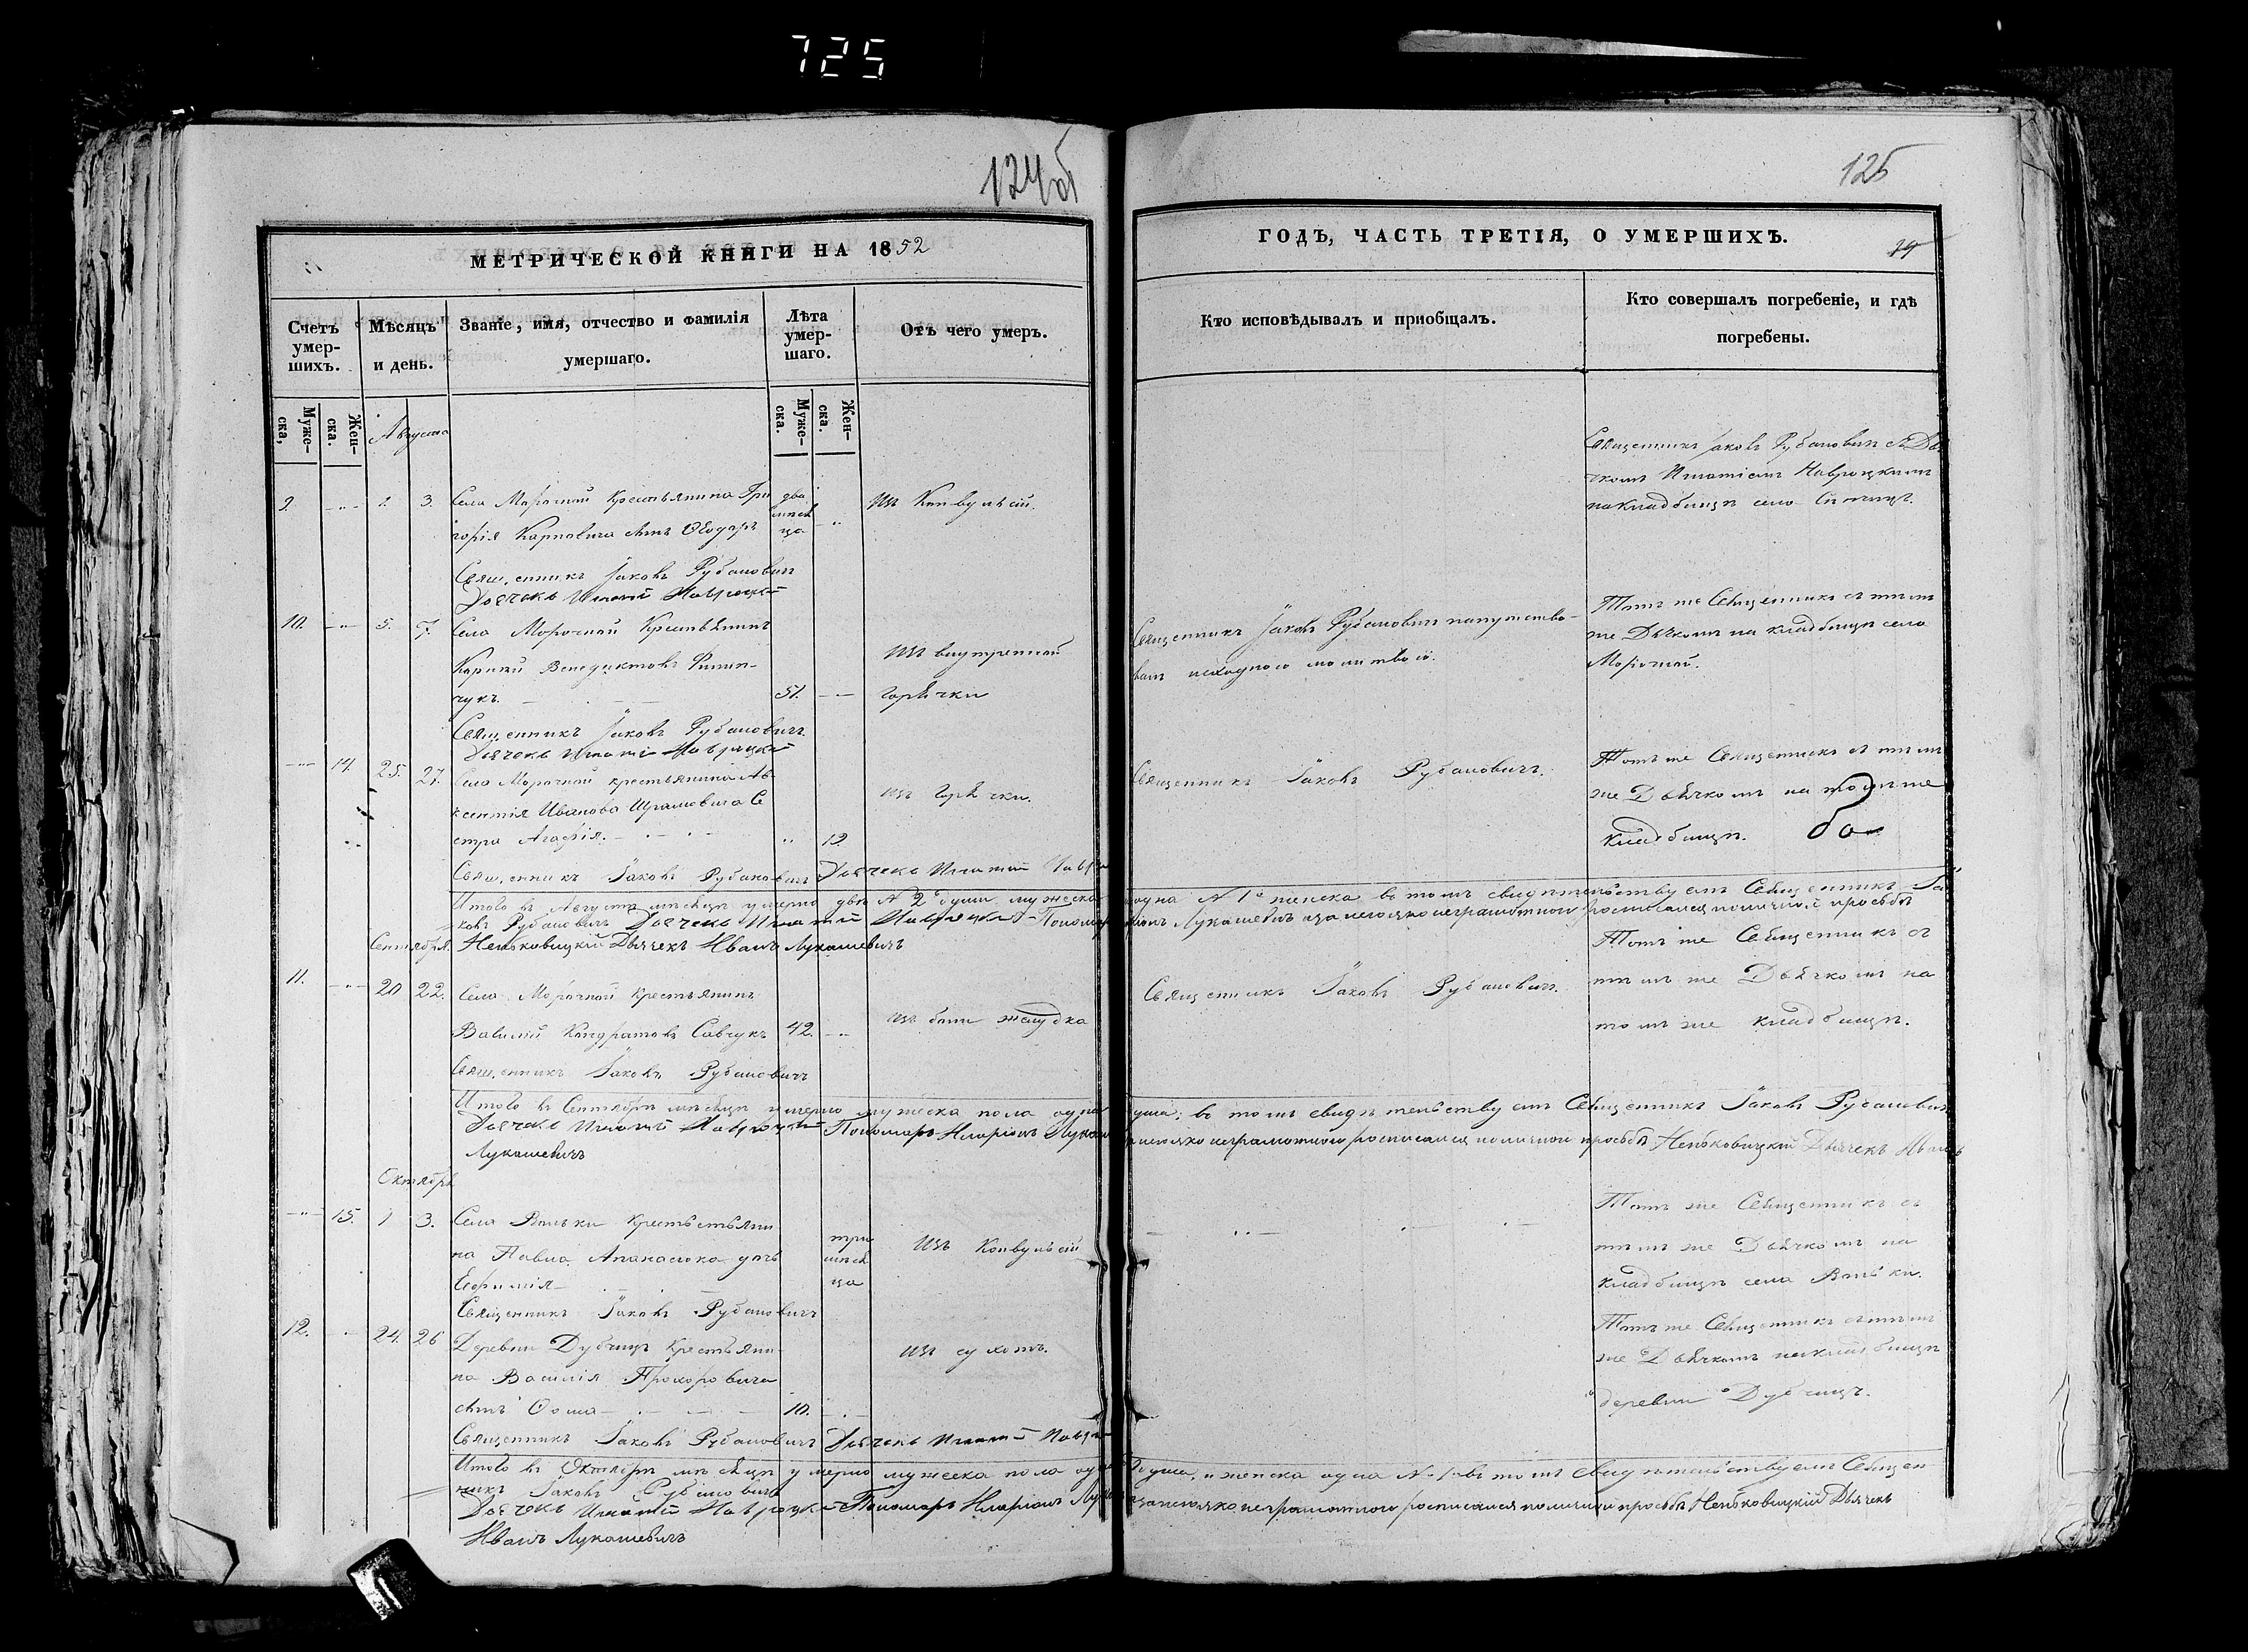 725
124об
125
МЕТРИЧЕСКОЙ КНИГИ НА 1852
ГОДЪ, ЧАСТЬ ТРЕТІЯ, О УМЕРШИХЪ.
Счетъ умер-
шихъ.
Мѣсяцъ
и день.
Званіе, имя, отчество и фамилія
умершаго.
Лѣта
умер-
шаго.
Отъ чего умеръ.
Кто исповѣдывалъ и приобщалъ.
Кто совершалъ погребеніе, и гдѣ
погребены.
Муже-
ска,
Жен-
ска.
Муже-
ска.
Жен-
ска.
Августа
Священникъ Іаковъ Рубановичъ съ Дья
чкомъ Игнатіемъ Навроцкимъ
на кладбищѣ село
9. 1. 3. Села Морочной Крестьянина Гри
горія Карповича сынъ Ѳеодоръ
два
мѣся
ца
Изъ Конвульсій.
Свящ,енникъ Іаковъ Рубановичъ
Дьячекъ Игнатій Навроцкій
10. 5. 7. Села Морочной Крестьянинъ
Венедиктовъ
чукъ. 51.
Изъ внутренной
горѣчки
Священникъ Іаковъ Рубановичъ напутство-
валъ исходною молитвою.
Тотъ же Священникъ съ тѣмъ
же Дьячкомъ на кладбищѣ села
Морочной.
Свящ,енникъ Іаковъ Рубановичъ
Дьячекъ Игнатій Навроцкій
14. 25. 27. Села Морочной крестьянина Ав-
ксентія Иванова Шрамовича Се
стра Агафія. 12
Изъ горѣчки.
Священникъ Іаковъ Рубановичъ.
Тотъ же Священникъ съ тѣмъ
же Дьячкомъ на томъ же
кладбищѣ.
Свящ,енникъ Іаковъ Рубановичъ Дьячекъ Игнатій Навро
Итого въ Августѣ мѣсяцѣ умерло двѣ № 2 души мужеска одна № 1 женска въ томъ свидѣтельствуемъ Священникъ Іа
ковъ Рубановичъ Дьячекъ Игнатій Навроцкій Пономарь Лукашевичъ а за него яко неграмотного росписался по личной просьбѣ
Сентября. Неньковицкій Дьячекъ Иванъ Лукашевичъ
11. 20 22. Села Морочной крестьянинъ
Василій Кондратовъ Савчукъ 42.
Изъ боли желудка
Священникъ Іаковъ Рубановичъ.
Тотъ же Священникъ съ
тѣмъ же Дьячкомъ на
томъ же кладбищѣ.
Свящ,енникъ Іаковъ Рубановичъ
Итого въ Сентябрѣ мѣсяцѣ умерло мужеска пола одна душа; въ томъ свидѣтельствуемъ Священникъ Іаковъ Рубановичъ
Дьячекъ Игнатій Навроцкій Пономарь Иларіонъ Лукаш а за него яко неграмотного росписался по личной просьбѣ Неньковицкій Дьячекъ Иванъ
Лукашевичъ
Октябрь
15. 1 3. Села Вольки Крестьстьяни
на Павла Апанасюка дочь
Евфимія
три
мѣся
ца
Изъ Конвульсій
Тотъ же Священникъ съ
тѣмъ же Дьячкомъ на
кладбищѣ села Вольки.
Священникъ Іаковъ Рубановичъ
12. 24. 26 Деревни Дубчицъ Крестьяни
на Василія Прохоровича
сынъ Ѳома 10.
Изъ сухотъ.
Тотъ же Священникъ съ тѣмъ
же Дьячкомъ на кладбищѣ
деревни Дубчицъ.
Священникъ Іаковъ Рубановичъ Дьячекъ Игнатій Навро
Итого въ Октябрѣ мѣсяцѣ умерло мужеска пола одна душа, и женска одна № 1 въ томъ свидѣтельствуемъ Священ
никъ Іаковъ Рубановичъ
Дьячекъ Игнатій Навроцкій Пономарь Иларіонъ Лука а за него яко неграмотного росписался по личной просьбѣ Неньковицкій Дьячекъ
Иванъ Лукашевичъ